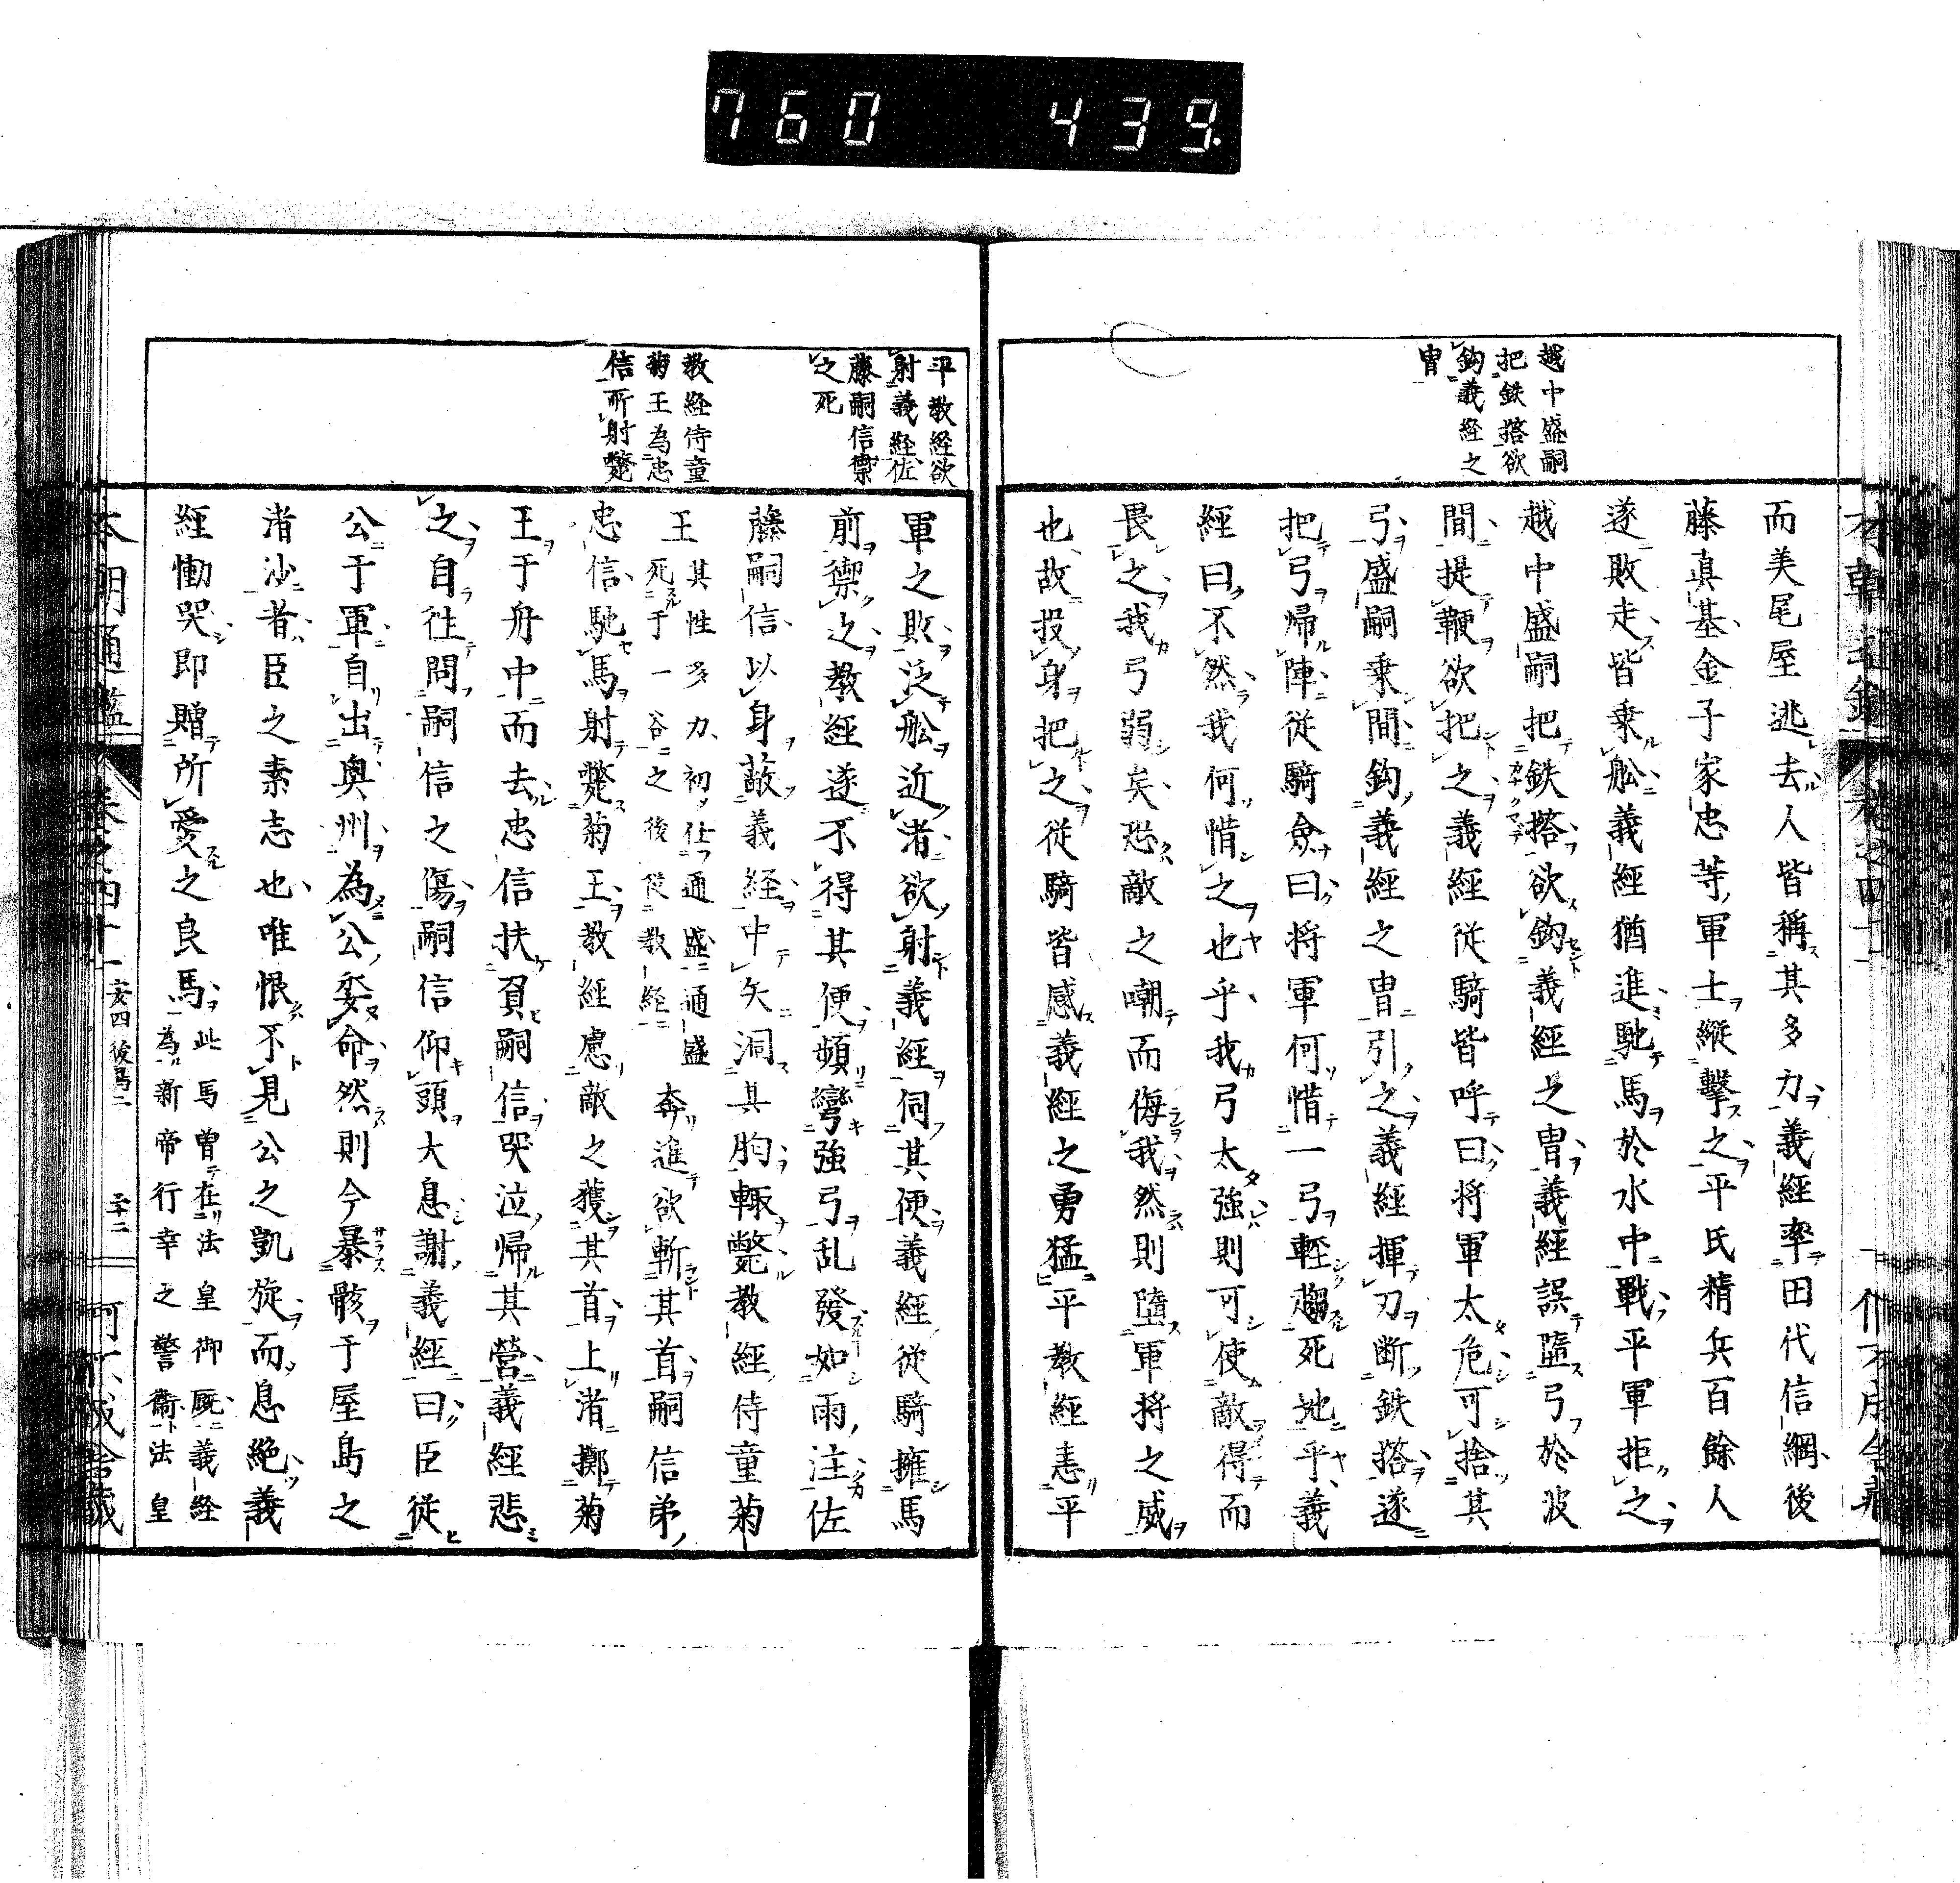 760 439.
越中盛嗣
把鉄搭欲
鈎義経之
冑
而美尾屋逃去人皆稱其多力義經率田代信綱後
藤真基金子家忠等軍士縱擊之平氏精兵百餘人
遂敗走皆乗舩義經猶進馳馬於水中戰平軍拒之
越中盛嗣把鉄搭欲鈎義經之冑義經誤墮弓於波
間提鞭欲把之義經從騎皆呼曰将軍太危可捨其
弓盛嗣乗間鈎義經之冑引之義經揮刃断鉄搭遂
把弓歸陣從騎僉曰将軍何惜一弓輕趨死地乎義
經曰不然我何惜之也乎我弓太強則可使敵得而
畏之我弓弱矣恐敵之嘲而侮我然則墮軍将之威
也故投身把之從騎皆感義經之勇猛平教經恚平
平教経欲
射義経佐
藤嗣信禦
之死
教経侍童
菊王為忠
信所射斃
軍之敗泛舩近渚欲射義經伺其便義經從騎擁馬
前禦之教經遂不得其便頻彎強弓乱發如雨注佐
藤嗣信以身蔽義経中矢洞其胸輙斃教經侍童菊
王其性多力初仕通盛通盛死于一谷之後従教経奔進欲斬其首嗣信弟
忠信馳馬射斃菊王教經慮敵之獲其首上渚擲菊
王于舟中而去忠信扶負嗣信哭泣歸其營義經悲
之自往問嗣信之傷嗣信仰頭大息謝義經曰臣従
公于軍自出奥州為公委命然則今暴骸于屋島之
渚沙者臣之素志也唯恨不見公之凱旋而息絶義
經慟哭即贈所愛之良馬此馬曽在法皇御厩義経為新帝行幸之警衞法皇
本朝通鑑 卷之四十一 安四後鳥二 二十二